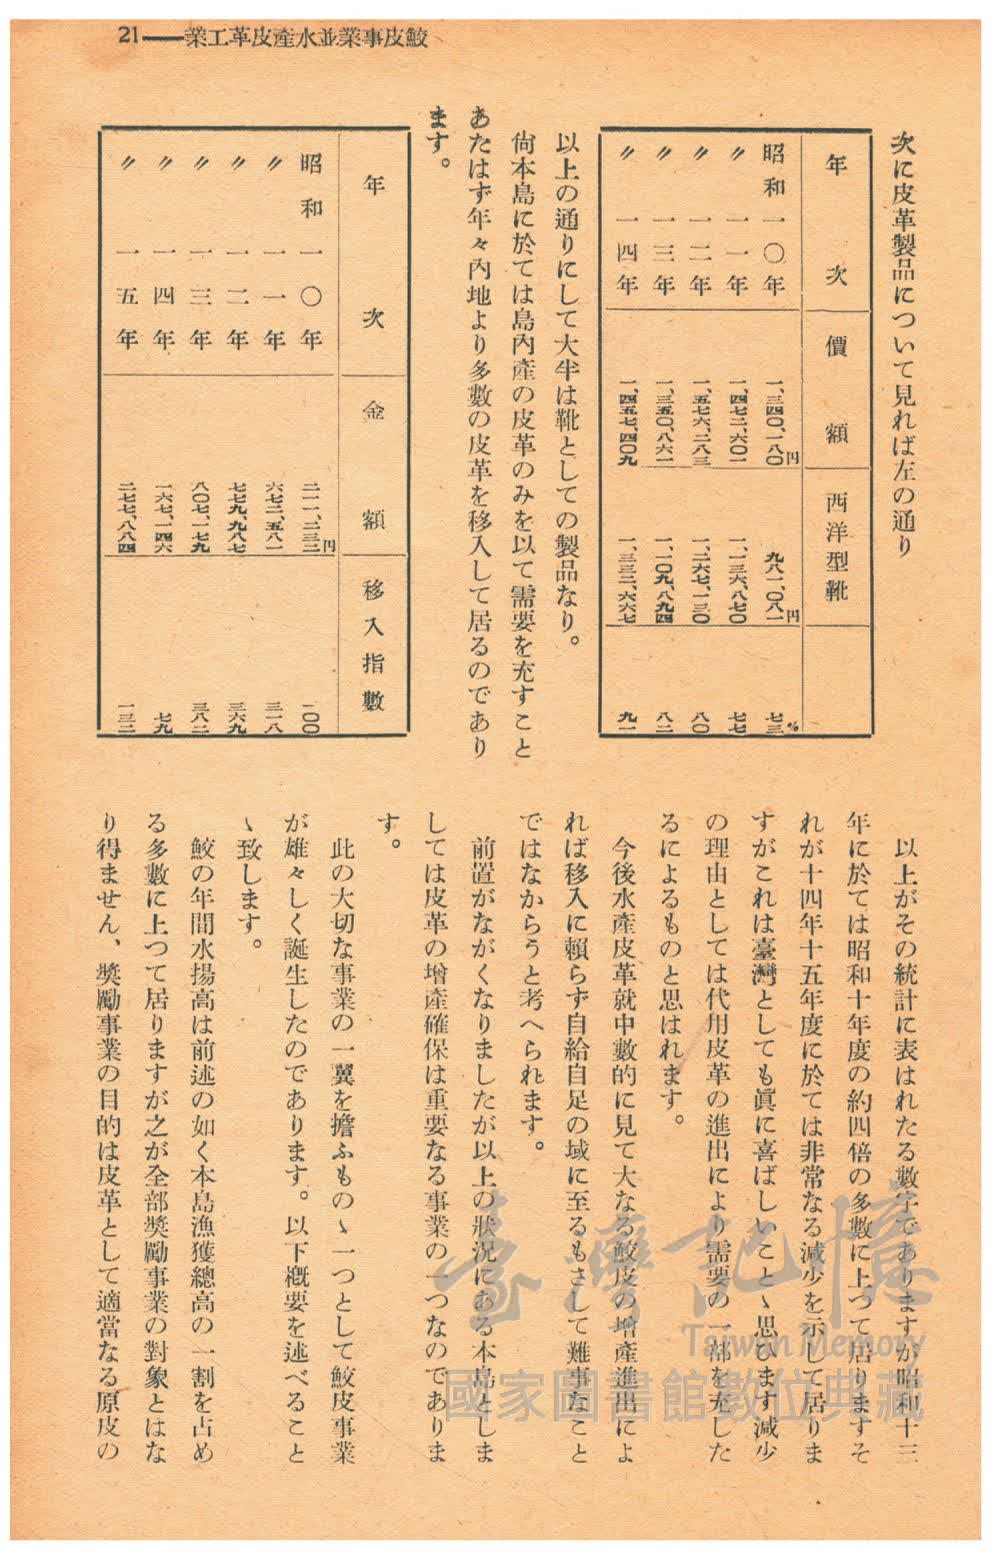 鮫皮事業並水產皮革工業——21
次に皮革製品について見れば左の通り
年次 價額 西洋型靴
昭和一〇年 一、三四〇、一八〇円 九八一、〇八一円 七三%
〃一一年 一、四七二、六〇一 一、一三六、八七〇 七七
〃一二年 一、五七六、二八三 一、二六七、一三〇 八〇
〃一三年 一、三五〇、八六一 一、一〇九、八九四 八二
〃一四年 一、四五七、四〇九 一、三三二、六六七 九一
以上の通りにして大半は靴としての製品なり。
尙本島に於ては島內產の皮革のみを以て需要を充すこと
あたはず年々內地より多數の皮革を移入して居るのであり
ます。
年次 金額 移入指數
昭和一〇年 二一一、二三二円 一〇〇
〃一一年 六七二、五八一 三一八
〃一二年 七七九、九八七 三六九
〃一三年 八〇七、一七九 三八二
〃一四年 一六七、一四六 七九
〃一五年 二七七、八八四 一三二
以上がその統計に表はれたる數字でありますが昭和十三
年に於ては昭和十年度の約四倍の多數に上つて居りますそ
れが十四年十五年度に於ては非常なる減少を示して居りま
すがこれは臺灣としても眞に喜ばしいことゝ思ひます減少
の理由としては代用皮革の進出により需要の一部を充した
るによるものと思はれます。
今後水產皮革就中數的に見て大なる鮫皮の增產進出によ
れば移入に賴らず自給自足の域に至るもさして難事なこと
ではなからうと考へられます。
前置がながくなりましたが以上の狀況にある本島としま
しては皮革の增產確保は重要なる事業の一つなのでありま
す。
此の大切な事業の一翼を擔ふものゝ一つとして鮫皮事業
が雄々しく誕生したのであります。以下槪要を述べること
ゝ致します。
鮫の年間水揚高は前述の如く本島漁獲總高の一割を占め
る多數に上つて居りますが之が全部獎勵事業の對象とはな
り得ません、獎勵事業の目的は皮革として適當なる原皮の
臺灣記憶
Taiwan Memory
國家圖書館數位典藏